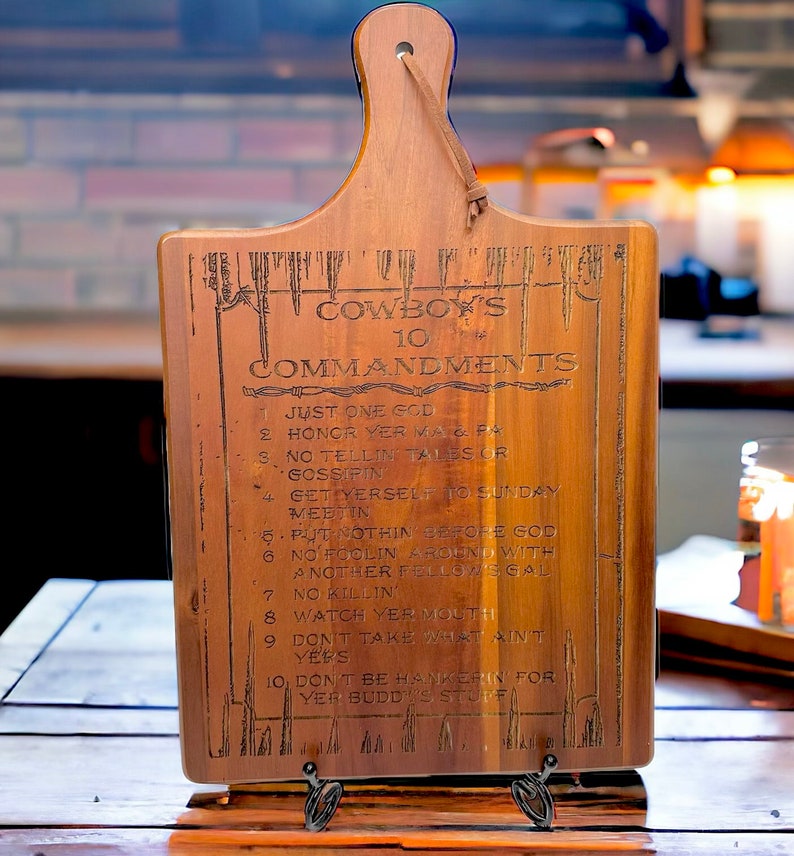 COWBOY'S
10
COMMANDMENTS
1 JUST ONE GOD
2 HONOR YER MA & PA
3 NO TELLIN' TALES OR
GOSSIPIN'
4 GET YERSELF TO SUNDAY
MEETIN'
5 PUT NOTHIN' BEFORE GOD
6 NO FOOLIN' AROUND WITH
ANOTHER FELLOW'S GAL
7 NO KILLIN'
8 WATCH YER MOUTH
9 DON'T TAKE WHAT AIN'T
YERS
10 DON'T BE HANKERIN' FOR
YER BUDDY'S STUFF